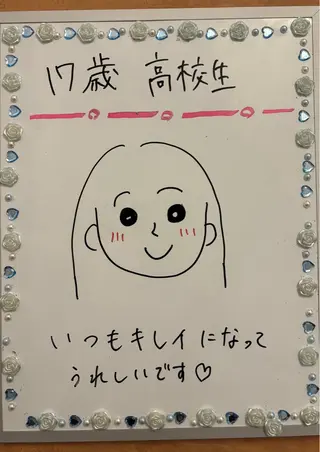 17歳 高校生
いつもキレイになって
うれしいです♡